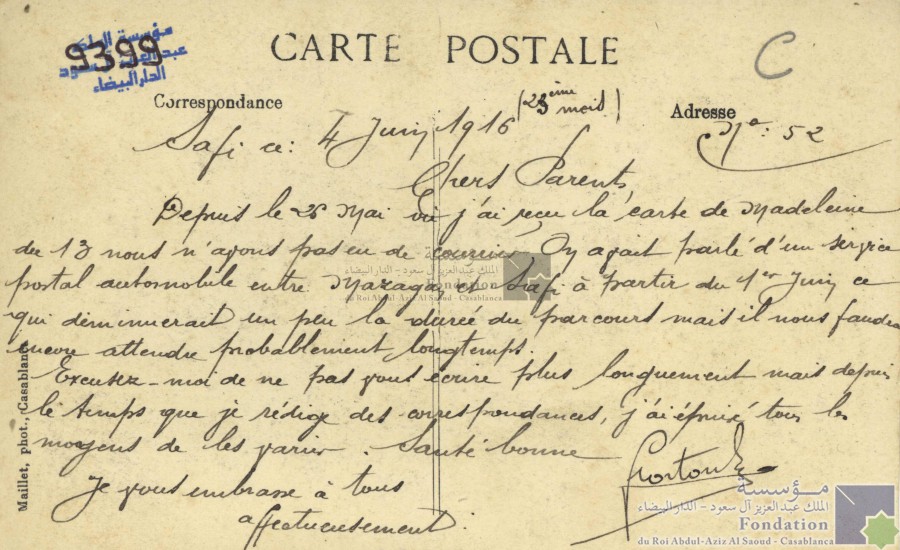 مؤسسة الملك
عبد العزيز آل سعود
الدار البيضاء
9399
CARTE POSTALE
C
Correspondance
Adresse
(23ème mois)
Nº: 52
Safi ce: 4 Juin 1916
Chers Parents
Depuis le 26 Mai où j'ai reçu la carte de Madeleine
du 13 nous n'avons pas eu de courrier. On avait parlé d'un service
postal automobile entre Mazagan et Safi à partir du 1er Juin ce
qui diminuerait un peu la durée du parcours mais il nous faudra
encore attendre probablement longtemps.
Excusez-moi de ne pas vous écrire plus longuement mais depuis
le temps que je rédige des correspondances, j'ai épuisé tous les
moyens de les varier. Santé bonne
Je vous embrasse à tous
affectueusement.
Maillet, phot., Casablanca
الملك عبد العزيز آل سعود - الدار البيضاء
Fondation
du Roi Abdul-Aziz Al Saoud - Casablanca
مؤسسة
الملك عبد العزيز آل سعود - الدار البيضاء
Fondation
du Roi Abdul-Aziz Al Saoud - Casablanca